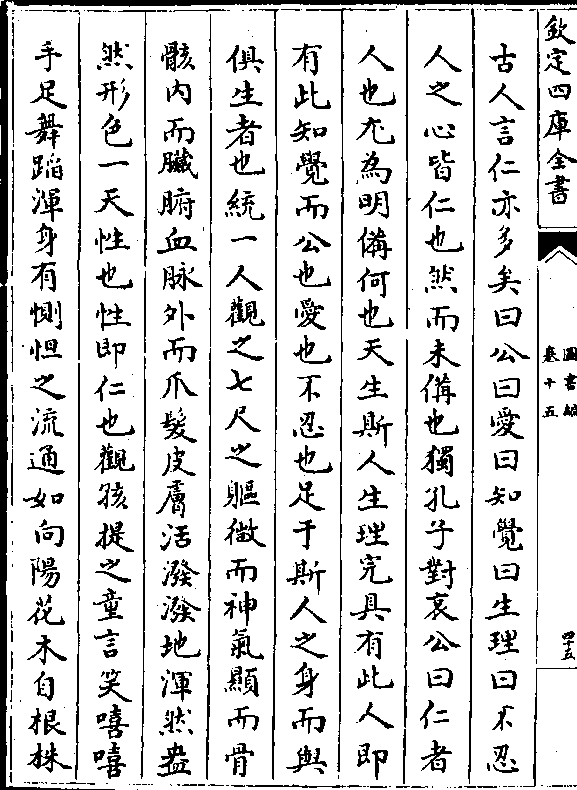 欽定四庫全書
圖書編
卷十五
四十五
古人言仁亦多矣曰公曰愛曰知覺曰生理曰不忍
人之心皆仁也然而未備也獨孔子對哀公曰仁者
人也尤為明備何也天生斯人生理完具有此人即
有此知覺而公也愛也不忍也足于斯人之身而與
俱生者也統一人觀之七尺之軀微而神氣顯而骨
骸內而臟腑血脉外而爪髮皮膚活潑潑地渾然盎
然形色一天性也性即仁也觀孩提之童言笑嘻嘻
手足舞蹈渾身有惻怛之流通如向陽花木自根株